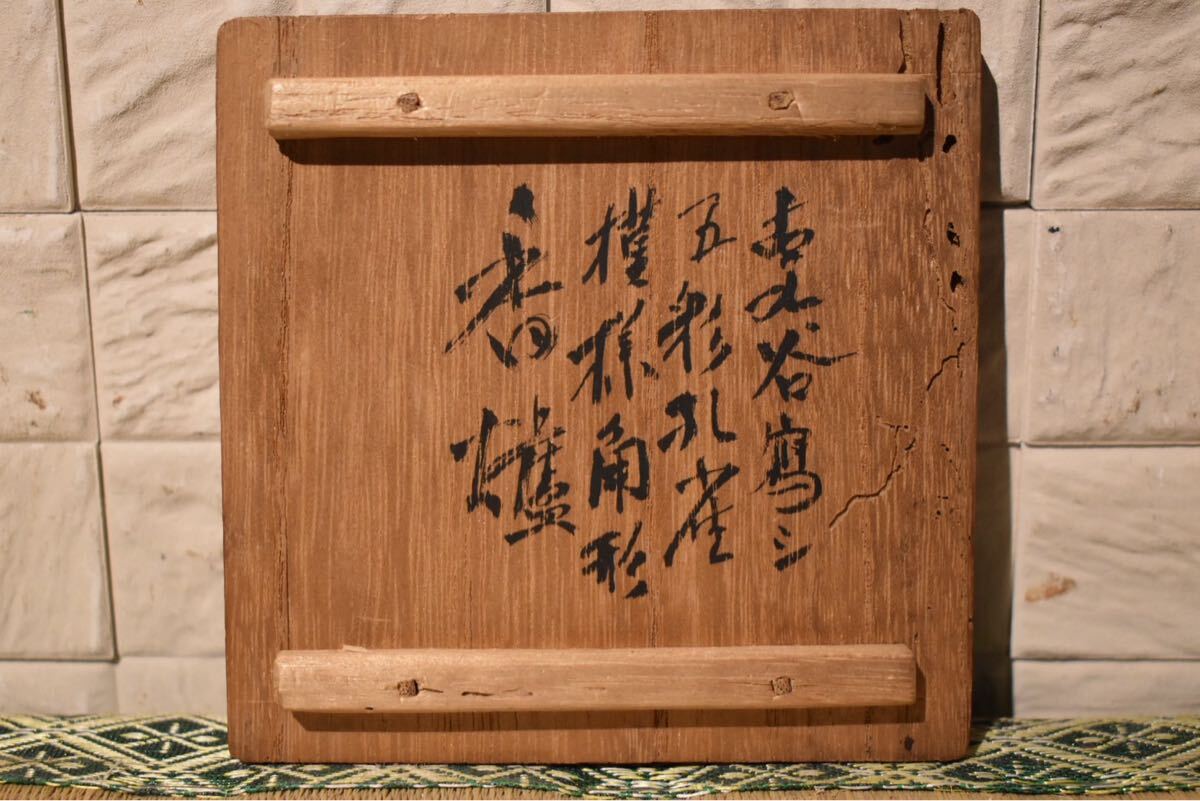 古九谷寫シ
五彩孔雀
模様角形
香爐